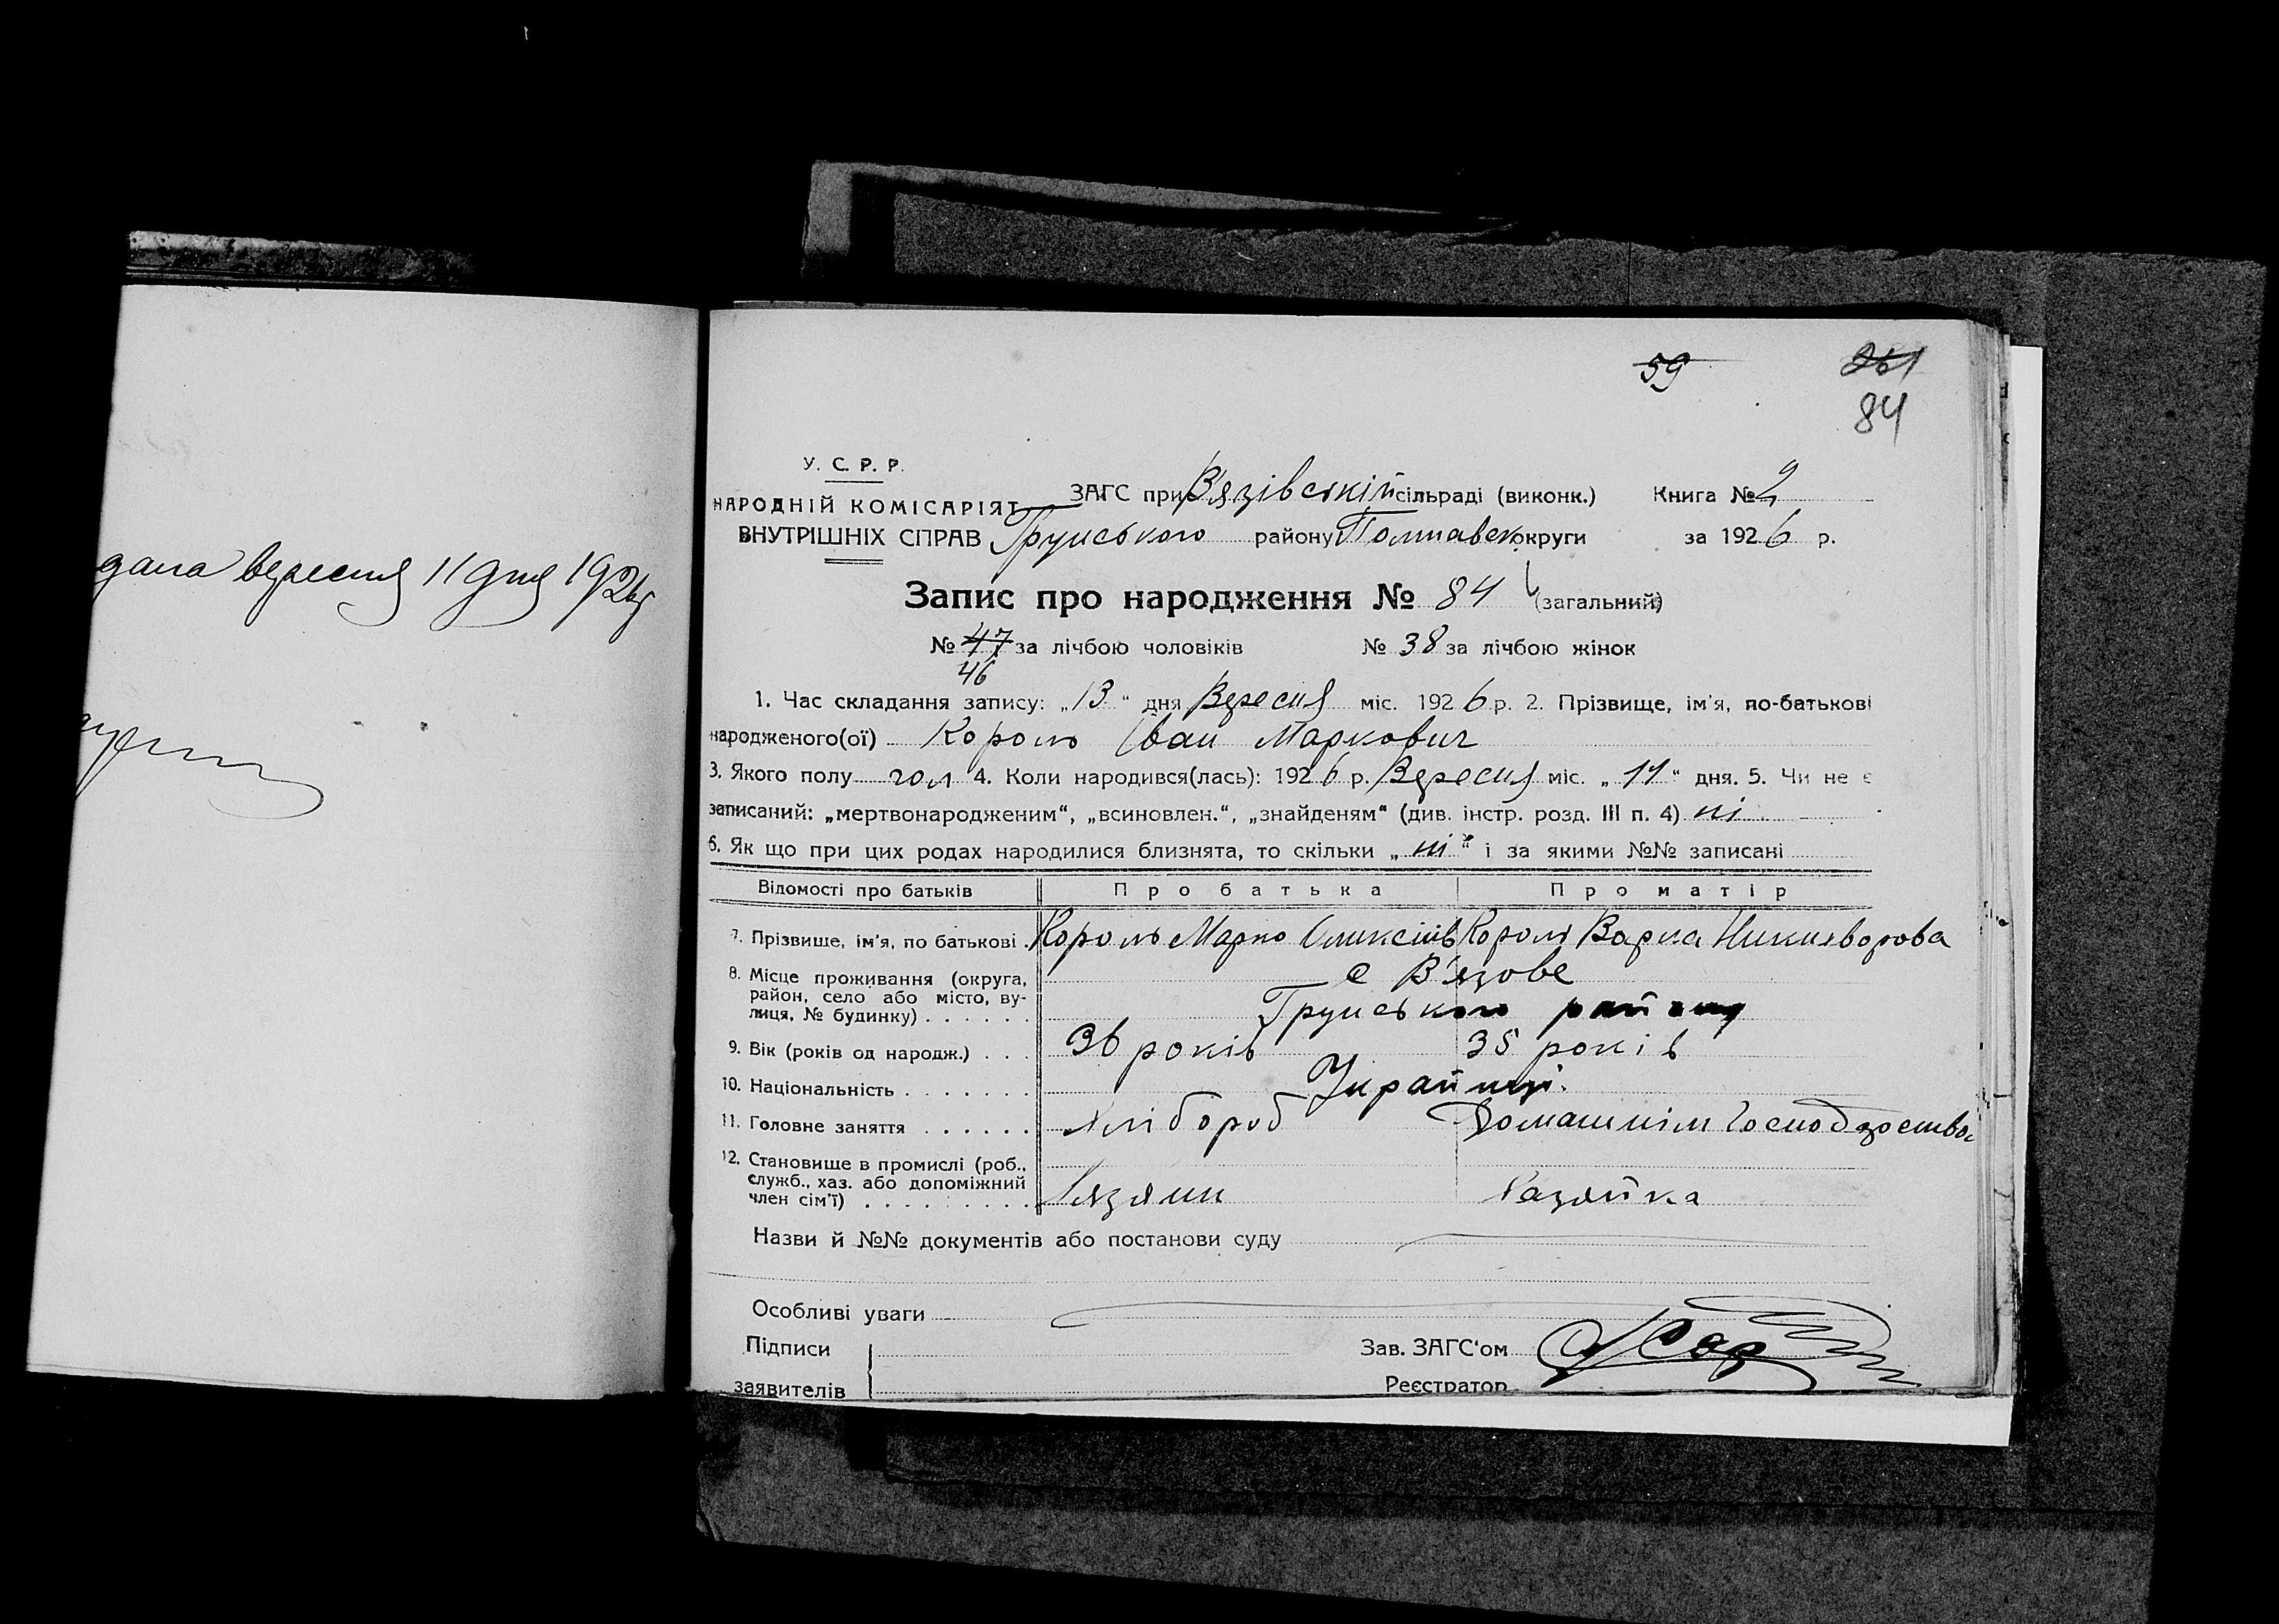 дана вересня 11 дня 1926 р
59
261
84
У. С. Р. Р.
НАРОДНІЙ КОМІСАРІЯТ
ВНУТРІШНІХ СПРАВ
ЗАГС при В'язівській сільраді (виконк.) Книга № 2
Грунського району Полтавськ округи за 1926 р.
Запис про народження № 84 (загальний)
№ 47 за лічбою чоловіків № 38 за лічбою жінок
46
1. Час складання запису: „13“ дня Вересня міс. 1926 р. 2. Прізвище, ім'я, по-батькові
народженого(ої) Король Іван Маркович
3. Якого полу чол 4. Коли народився(лась): 1926 р. Вересня міс. „11“ дня. 5. Чи не є
записаний: „мертвонародженим“, „всиновлен.“, „знайденям“ (див. інстр. розд. III п. 4) ні
6. Як що при цих родах народилися близнята, то скільки „ні“ і за якими №№ записані
Відомості про батьків Про батька Про матір
7. Прізвище, ім'я, по батькові Король Марко Оликсіів Король Варка Никихворова
8. Місце проживання (округа, с В'язове
район, село або місто, ву-
лиця, № будинку) Грунського району
9. Вік (років од народж.) 36 років 35 років
10. Національність Українці.
11. Головне заняття Хлібороб Домашнім Господарством
12. Становище в промислі (роб.,
служб., хаз. або допоміжний
член сім'ї) Хазяин Хазяйка
Назви й №№ документів або постанови суду
Особливі уваги
Підписи Зав. ЗАГС'ом
заявителів Реєстратор